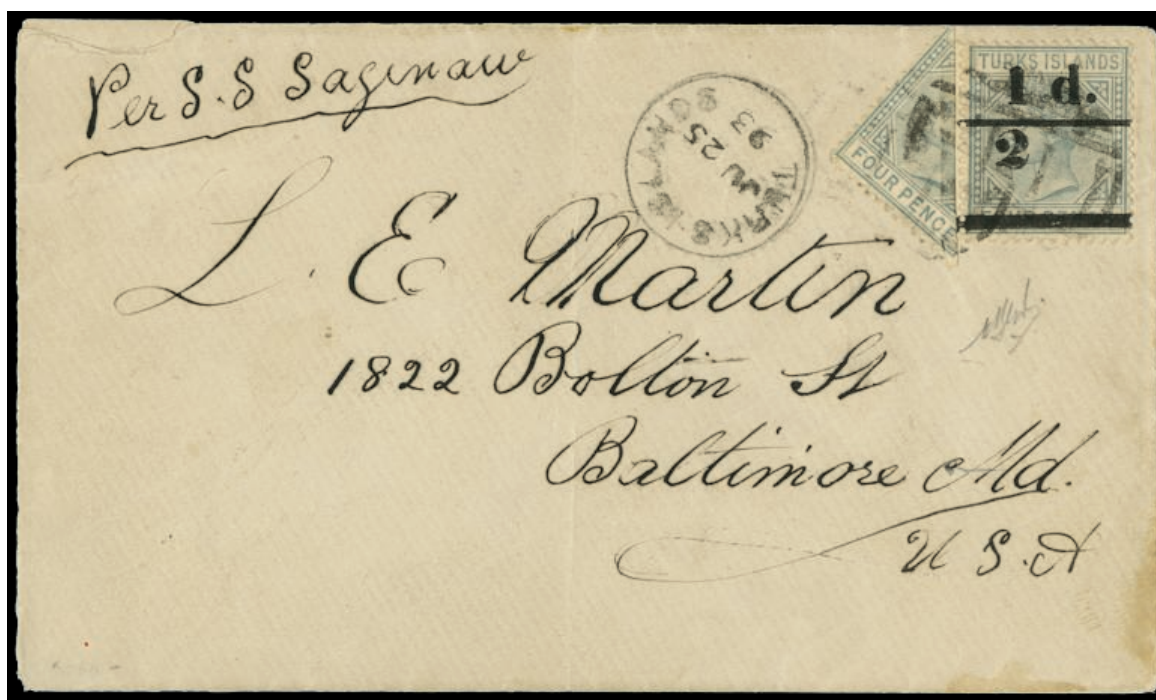 Per S.S Saginaw
TURKS ISLANDS
JU 25
93
FOUR PENCE
TURKS ISLANDS
1 d.
2
L. E Martin
1822 Bolton St
Baltimore Md.
U S. A